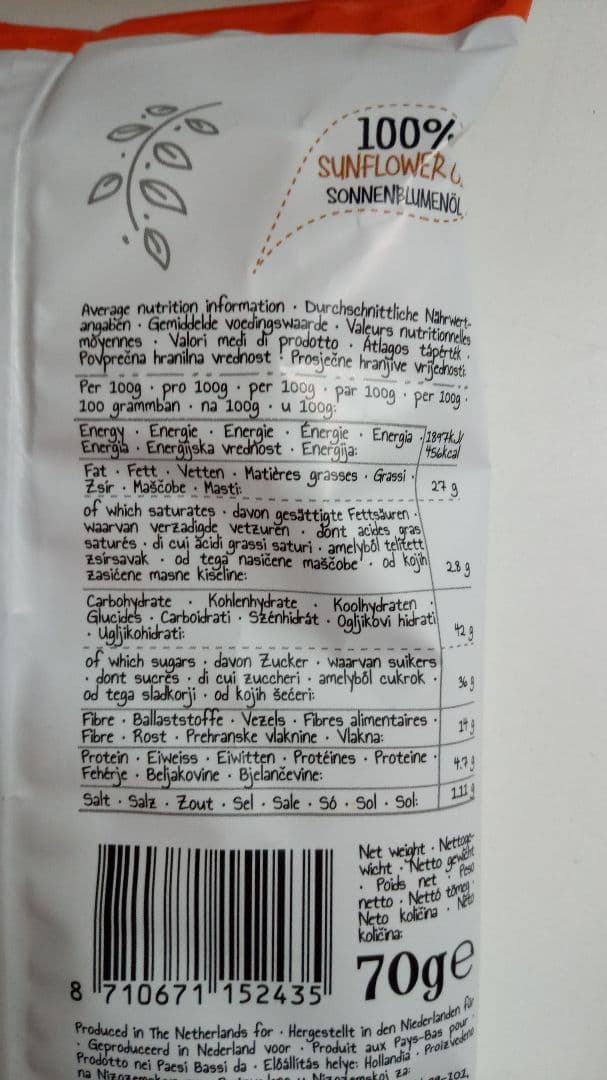 100%
SUNFLOWER
SONNENBLUMENÖL
Average nutrition information · Durchschnittliche Nährwert-
angaben · Gemiddelde voedingswaarde · Valeurs nutritionnelles
moyennes · Valori medi di prodotto · Átlagos tápérték ·
Povprečna hranilna vrednost · Prosječne hranjive vrijednosti
Per 100g · pro 100g · per 100g · par 100g · per 100g ·
100 grammban · na 100g · u 100g:
Energy · Energie · Energie · Énergie · Energia · 1897kJ/
Energia · Energijska vrednost · Energija: 456kcal
Fat · Fett · Vetten · Matières grasses · Grassi ·
Zsír · Maščobe · Masti: 27 g
of which saturates · davon gesättigte Fettsäuren ·
waarvan verzadigde vetzuren · dont acides gras
saturés · di cui acidi grassi saturi · amelyből telített
zsírsavak · od tega nasičene maščobe · od kojih
zasićene masne kiseline: 2.8 g
Carbohydrate · Kohlenhydrate · Koolhydraten ·
Glucides · Carboidrati · Szénhidrát · Ogljikovi hidrati
· Ugljikohidrati: 42 g
of which sugars · davon Zucker · waarvan suikers
· dont sucres · di cui zuccheri · amelyből cukrok ·
od tega sladkorji · od kojih šećeri: 36 g
Fibre · Ballaststoffe · Vezels · Fibres alimentaires ·
Fibre · Rost · Prehranske vlaknine · Vlakna:
Protein · Eiweiss · Eiwitten · Protéines · Proteine ·
Fehérje · Beljakovine · Bjelančevine: 4.7 g
Salt · Salz · Zout · Sel · Sale · Só · Sol · Sol: 1.11 g
Net weight · Nettoge-
wicht · Netto gewicht
· Poids net · Peso
netto · Nettó tömeg ·
Neto količina · Neto
količina:
70g e
8 710671 152435
Produced in The Netherlands for · Hergestellt in den Niederlanden für
· Geproduceerd in Nederland voor · Produit aux Pays-Bas pour
Prodotto nei Paesi Bassi da · Előállítás helye: Hollandia · Proizvedeno
na za: